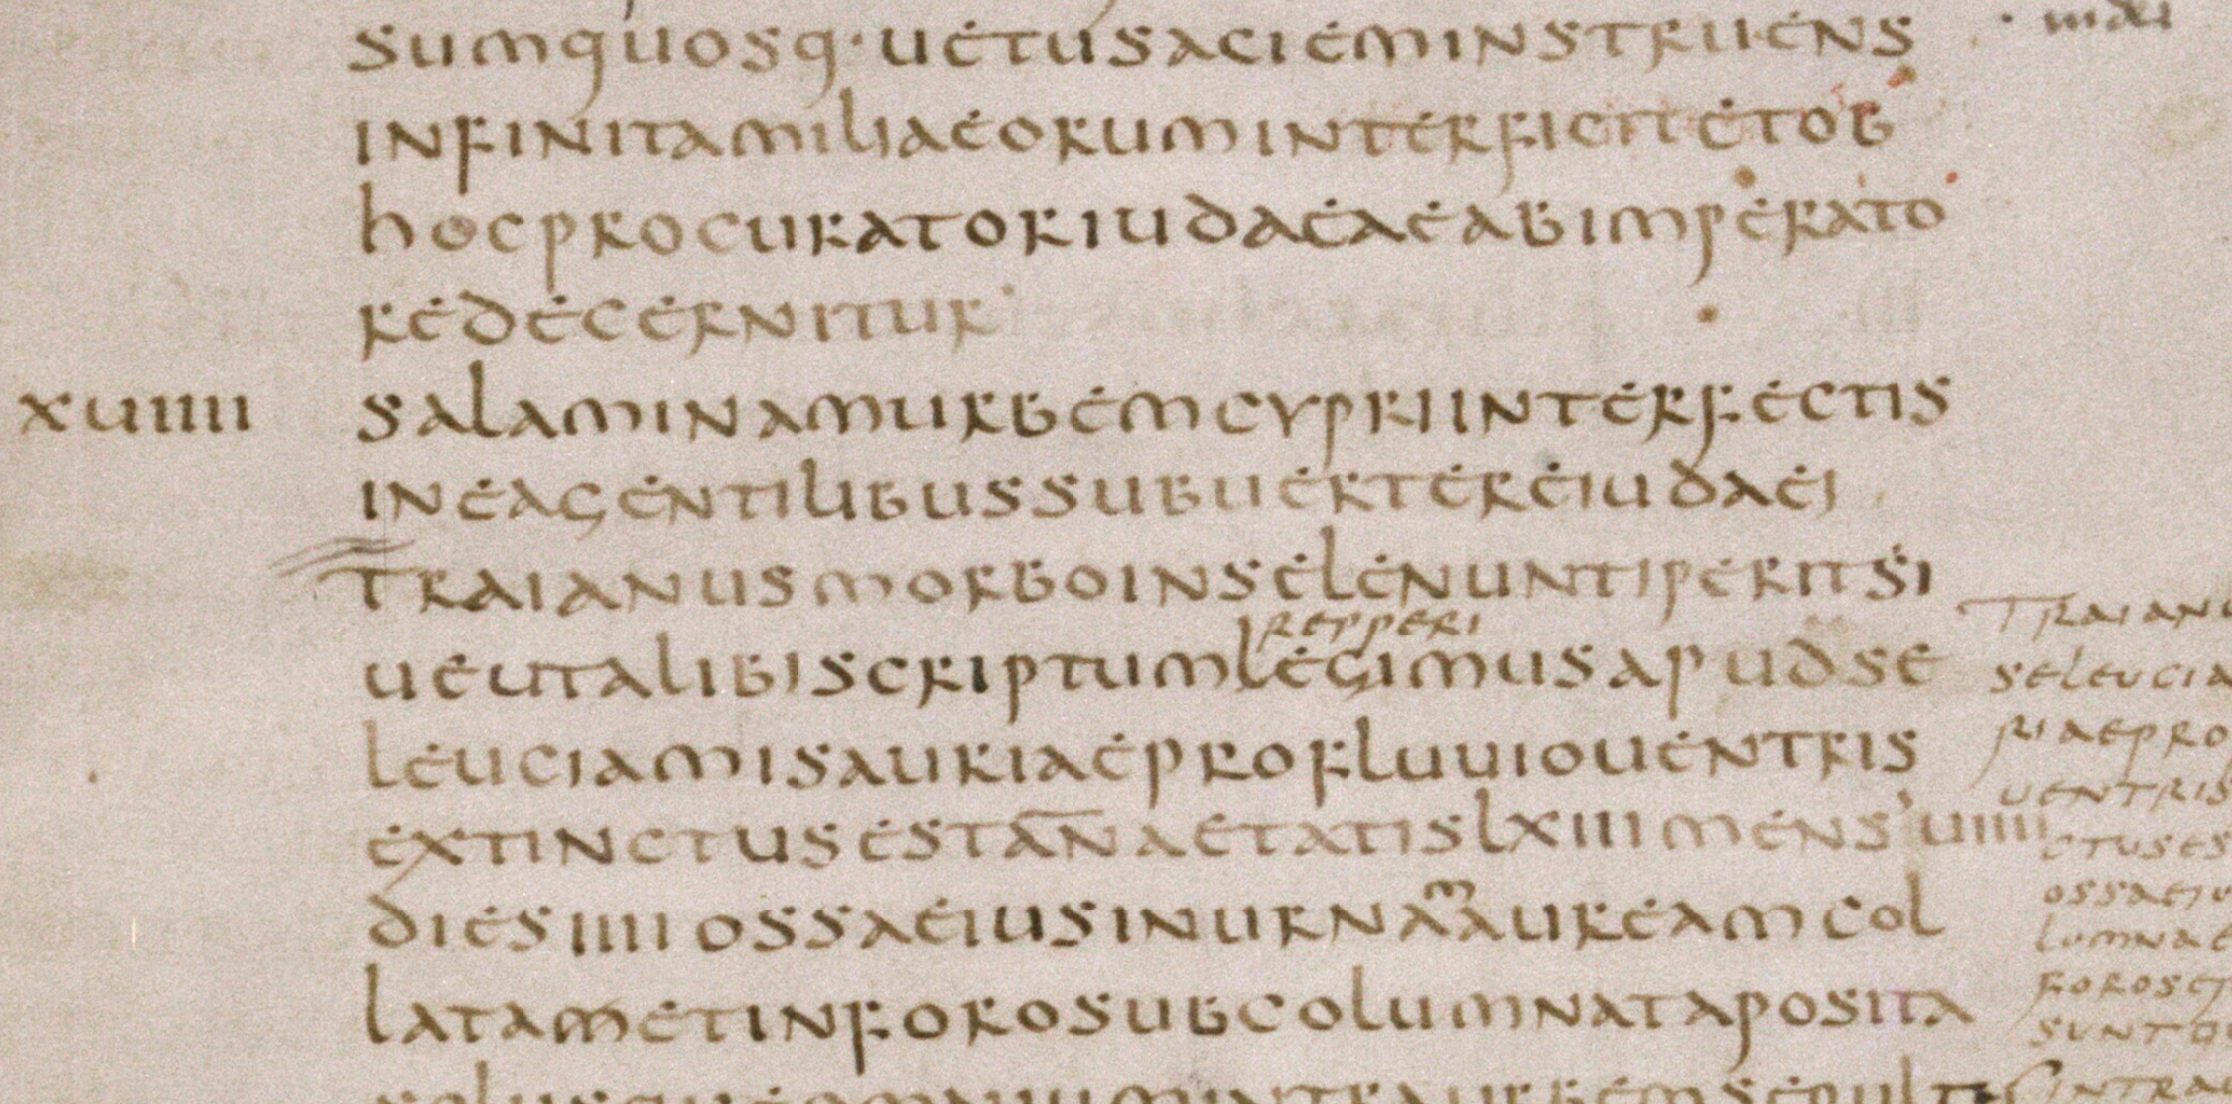 sumquosq·uetusacieminstruens
infinitamiliaeoruminterficitetob
hocprocuratoriudaeaeabimperato
redecernitur
xuiiii
salaminamurbemcypriinterfectis
ineagentilibussubuertereiudaei
traianusmorboinselenuntiperiitsi
repperi
ueutalibiscriptumlegimusapudse
leuciamisauriaeprofluuiouentris
extinctusestan̅aetatislxiiimens'uiiii
m
diesiiiiossaeiusinurnaaureamcol
latametinforosubcolumnataposita
traian
seleucia
riaepro
uentris
ctuses
ossaeiu
lumnae
foroset
sunt
intra